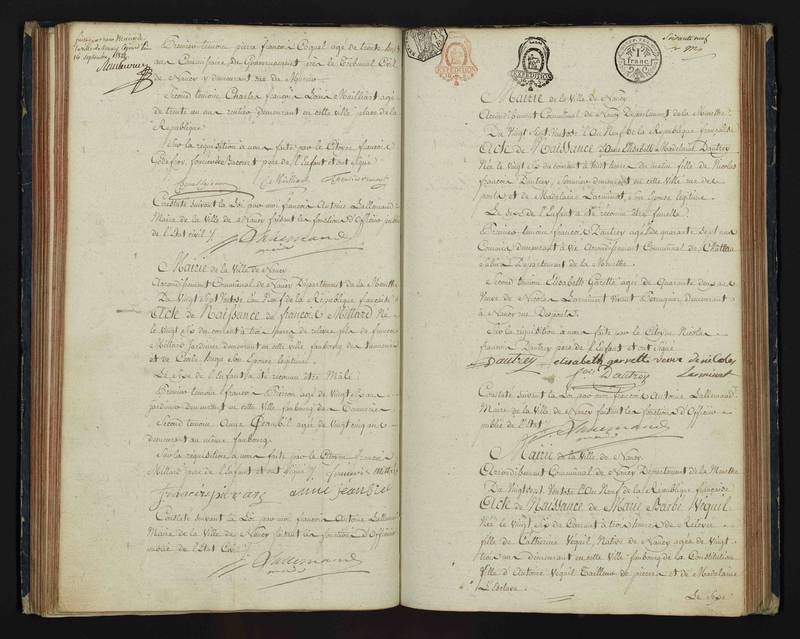 16 septembre
Premier temoin pierre françois agé de trente
au Commissaire de Gouvernement près le Tribunal Civil
de Nancy y demeurant rue de
Second temoin Charles françois Louis Mailliart agé
de trente un ans rentier demeurant en cette ville place de la
République
Sur la requisition à nous faite par le Citoyen françois
Godefroy pere de l'Enfant et ont signé
Constaté suivant la Loi par moi françois Antoine Lallemand
Maire de la Ville de Nancy faisant les fonctions d'officier public
de l'Etat civil
Lallemand
Mairie de la Ville de Nancy
Arrondissement Communal de Nancy Département de la Meurthe
Du Vingt Sept Ventose l'an Neuf de la République française
Acte de Naissance de françois Millard Né
le Vingt Six du courant à trois heures de relevée fils de françois
Millard Jardinier demeurant en cette ville faubourg des
et de son Epouse legitime
Le Sexe de l'Enfant a été reconnu être Mâle
Premier temoin françois Pierson agé de vingt six ans
Jardinier demeurant en cette Ville faubourg des
Second temoin Anne agée de vingt cinq ans
demeurant au même faubourg
Sur la requisition à nous faite par le Citoyen françois
Millard pere de l'Enfant et ont signé
anne
Constaté suivant la Loi par moi françois Antoine Lallemand
Maire de la Ville de Nancy faisant les fonctions d'officier
public de l'Etat Civil
Lallemand
EXPEDITION
EXPEDITION
1 franc
Soixante neuf
Mairie de la Ville de Nancy
Arrondissement Communal de Nancy Département de la Meurthe
Du Vingt Sept Ventose l'An Neuf de la République française
Acte de Naissance d'Anne Elisabeth Madelaine Dautrey
Née le Vingt Six du courant à huit heures du matin fille de Nicolas
françois Dautrey, demeurant en cette Ville rue des
ponts et de Madelaine Larminat, son Epouse legitime
Le Sexe de l'Enfant a été reconnu être femelle
Premier temoin françois Dautrey agé de quarante Sept ans
Commis demeurant à Vic Arrondissement Communal de Chateau
Salins Département de la Meurthe
Second temoin Elisabeth Gorelle agée de Quarante deux ans
Veuve de Nicolas Larminat Vivant Perruquier demeurant
à Nancy rue
Sur la requisition à nous faite par le Citoyen Nicolas
françois Dautrey pere de l'Enfant et ont signé
Dautrey elisabeth veuve de nicolas
Dautrey larminat
Constaté suivant la Loi par moi françois Antoine Lallemand
Maire de la Ville de Nancy faisant les fonctions d'Officier
public de l'Etat
Lallemand
Mairie de la Ville de Nancy
Arrondissement Communal de Nancy Département de la Meurthe
Du Vingt Sept Ventose l'An Neuf de la République française
Acte de Naissance de Marie Barbe Viquil
Née le Vingt Six du Courant à trois heures de Relevée
fille de Catherine Viquil, Native de Nancy agée de Vingt
trois ans demeurant en cette Ville faubourg de la Constitution
fille d'Antoine Viquil Tailleur de pierres et de Madelaine
Le Sexe